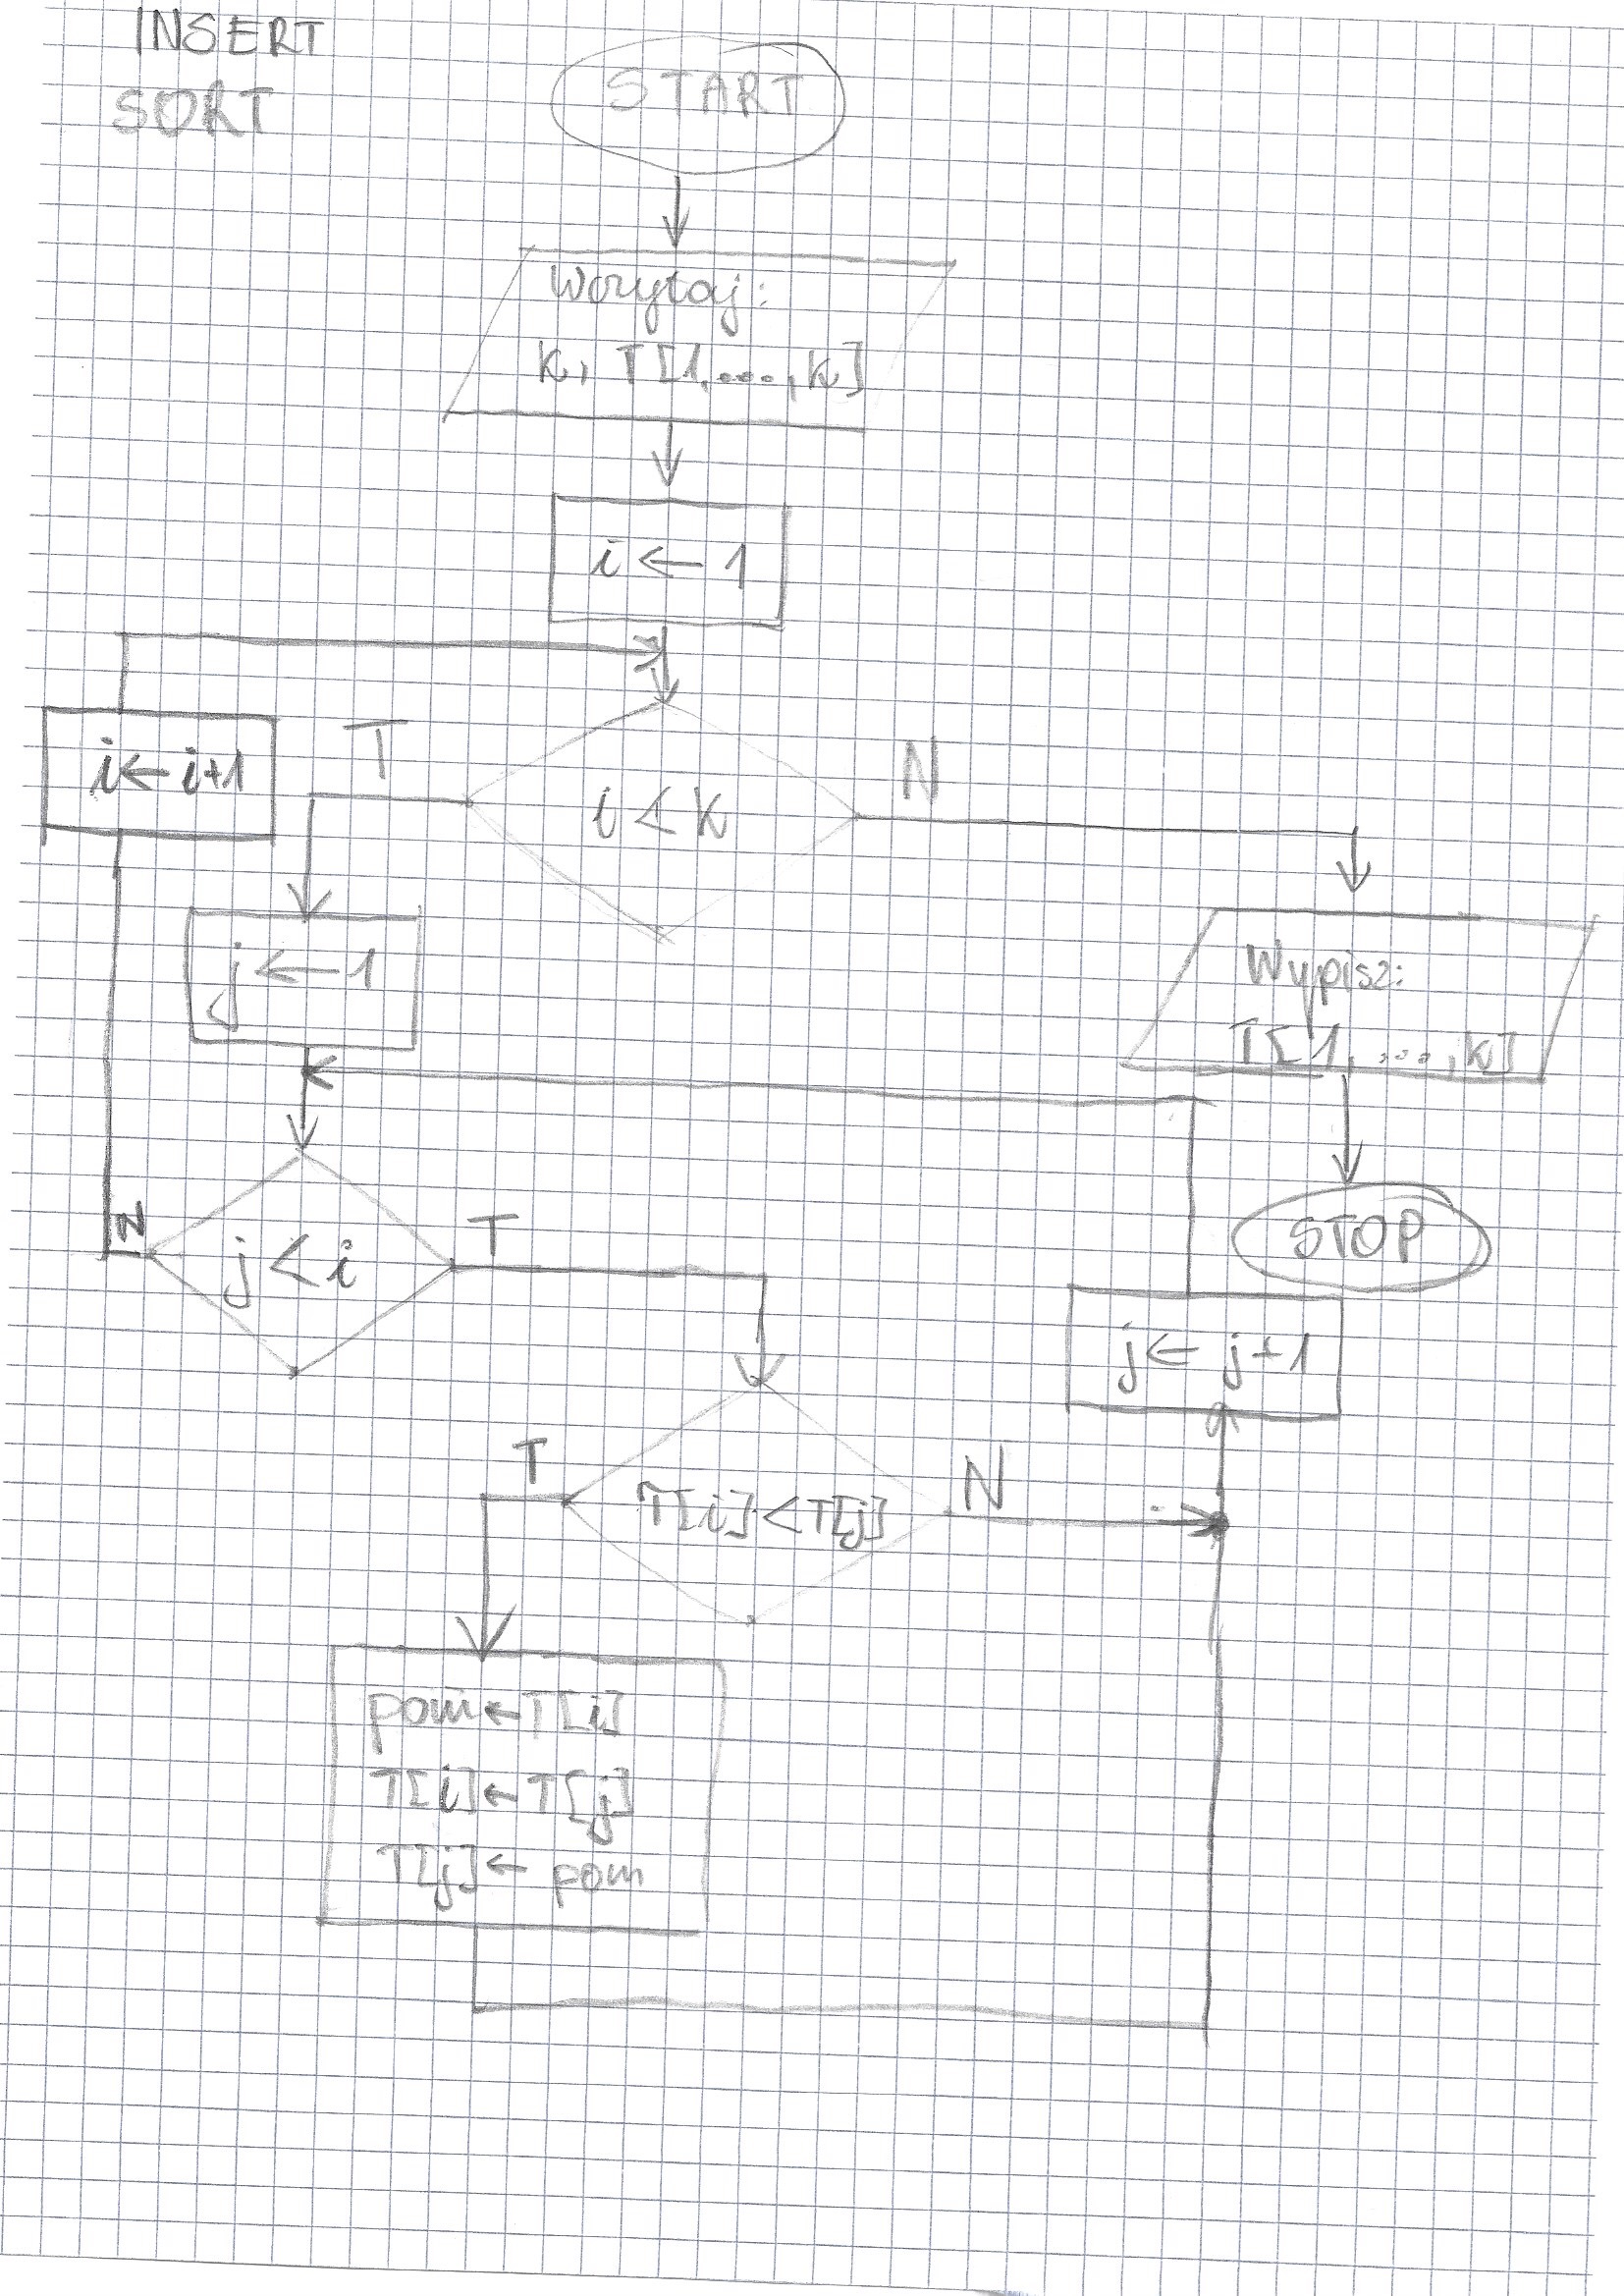 INSERT
SORT
START
Wczytaj:
k, T[1,...,k]
i ← 1
i ← i+1
T
i < k
N
j ← 1
Wypisz:
T[1,...,k]
N
j < i
T
STOP
j ← j+1
T
T[i] < T[j]
N
pom ← T[i]
T[i] ← T[j]
T[j] ← pom